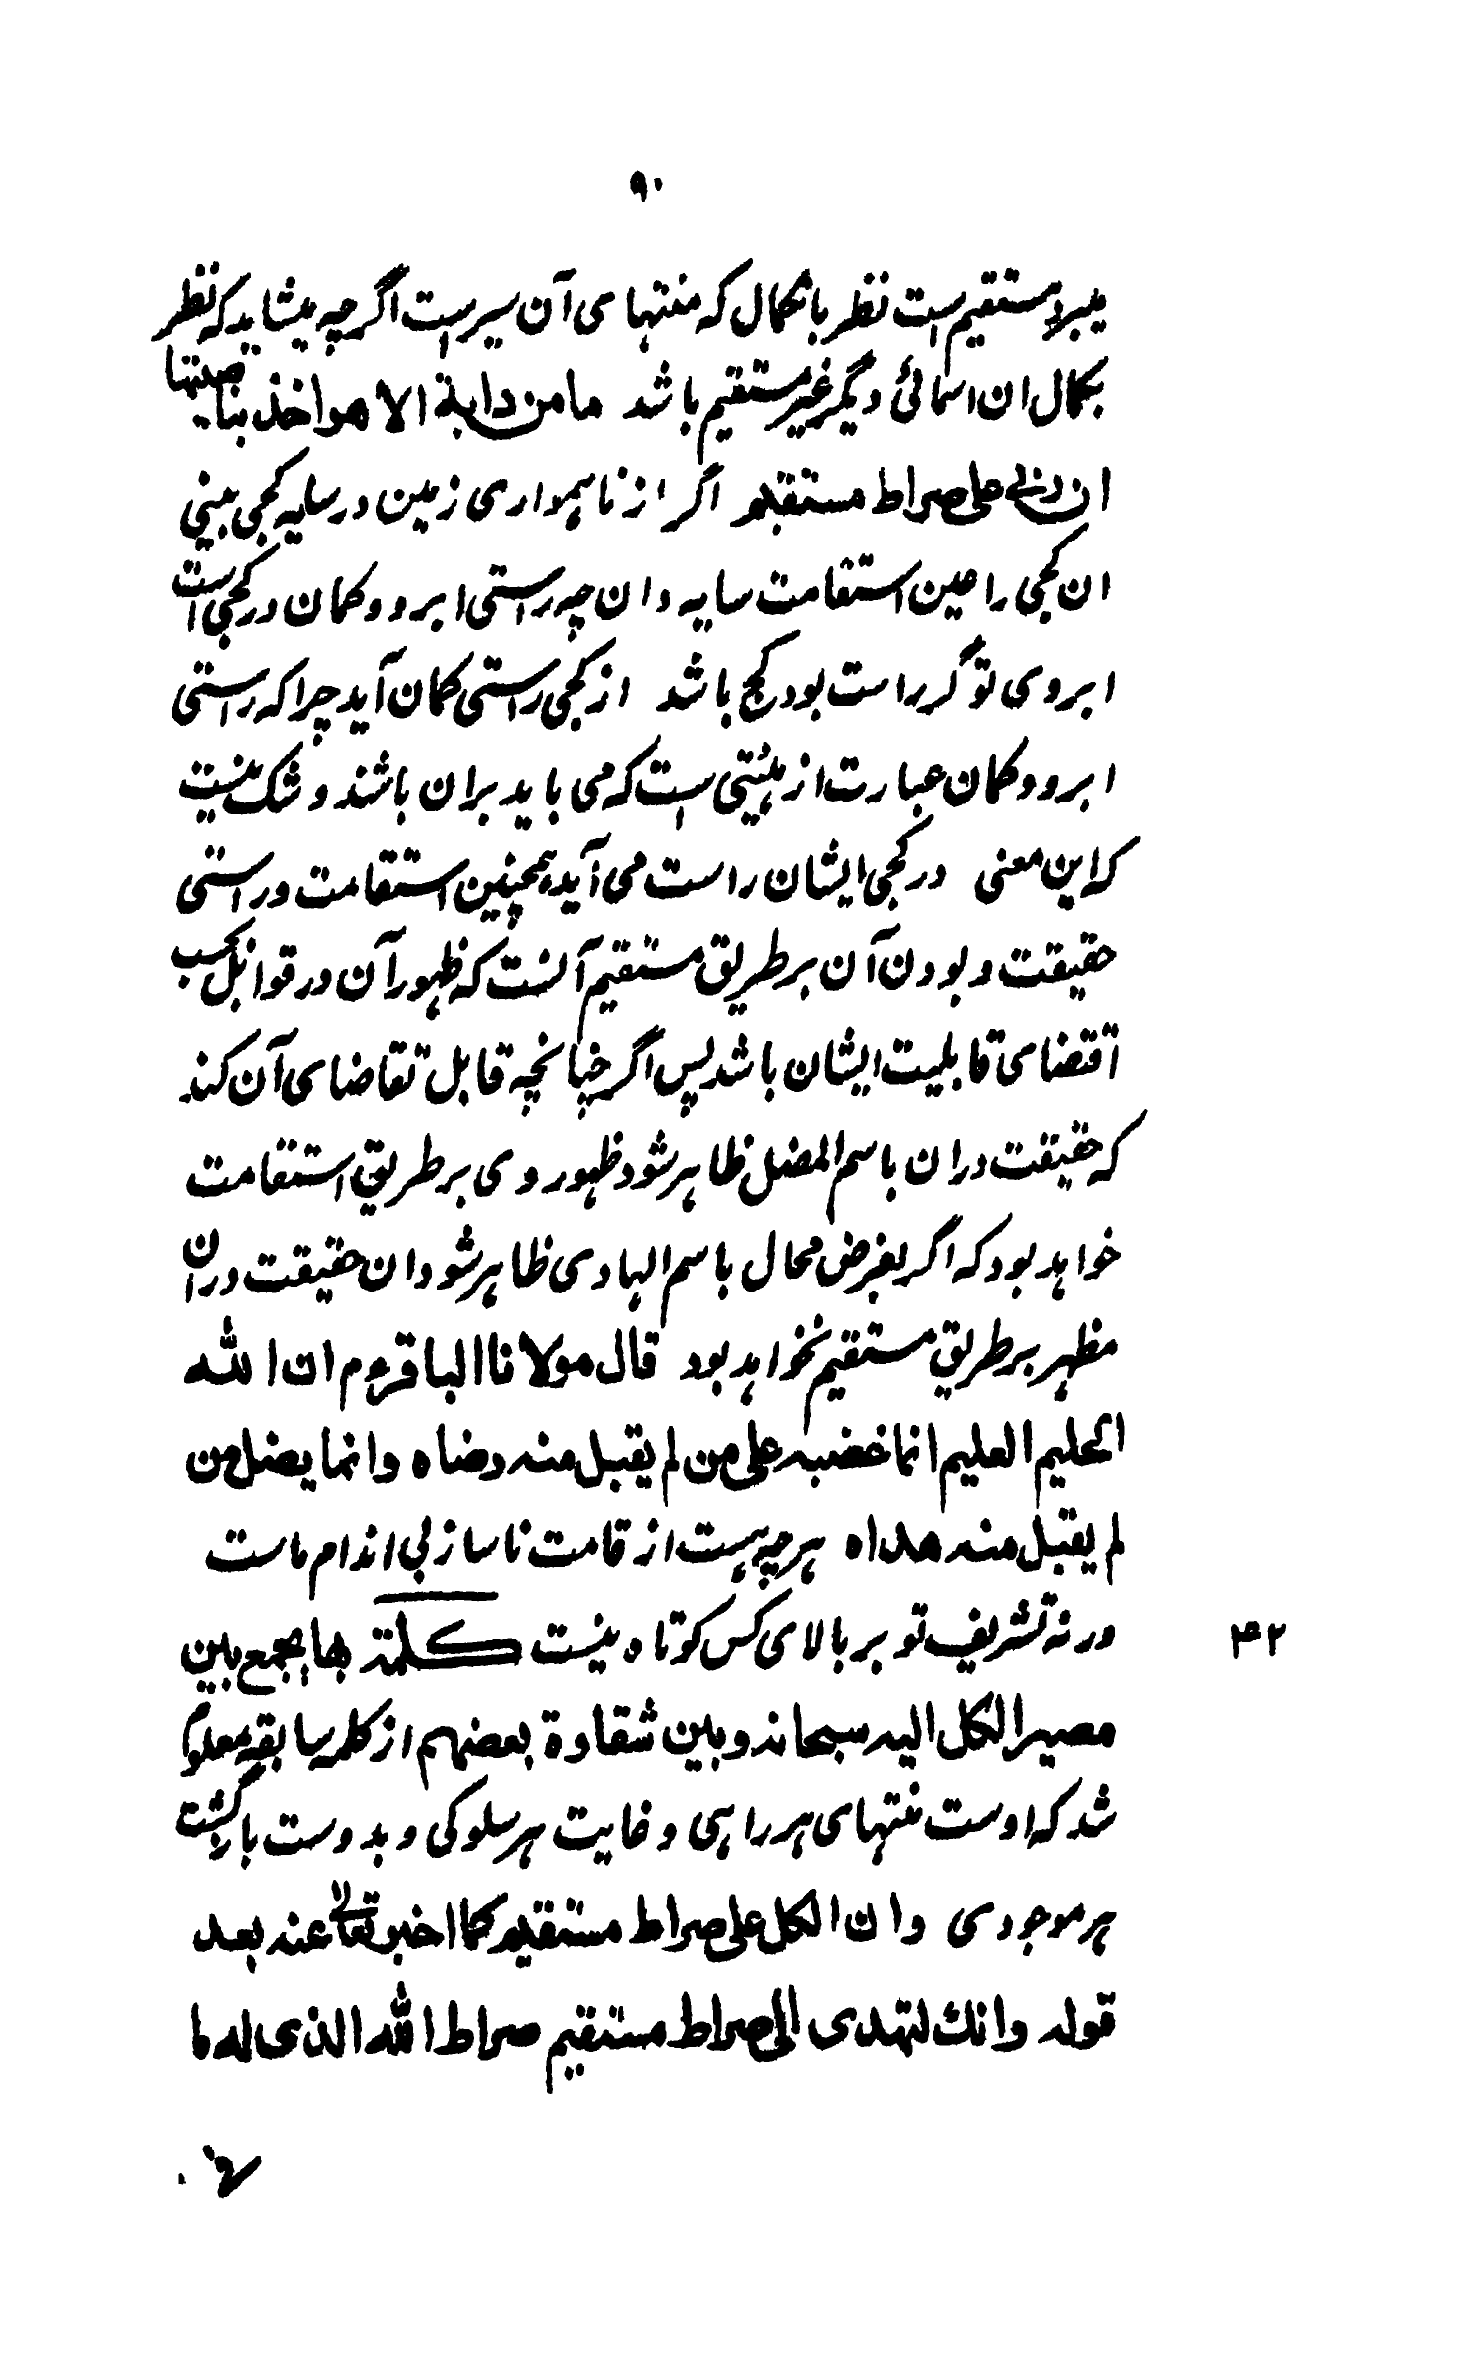 ۹۰
میبرد مستقیم است نظر بانکمال که منتهای آن سیر است اگرچه میشاید که نظر
بکمال ان اسمائی دیگر غیر مستقیم باشد مامن دابة الا هو اخذ بناصیتها
ان ربی علی صراط مستقیم اگر از ناهمواری زمین در سایه کجی بینی
ان کجی را عین استقامت سایه دان چه راستی ابرو و کمان در کجی است
ابروی تو گر راست بود کج باشد از کجی راستی کمان آید چرا که راستی
ابرو و کمان عبارت از هیئتی است که می باید بران باشند و شک نیست
که این معنی در کجی ایشان راست می آید همچنین استقامت و راستی
حقیقت و بودن آن بر طریق مستقیم آنست که ظهور آن در قوابل بحسب
اقتضای قابلیت ایشان باشد پس اگر چنانچه قابل تقاضای آن کند
که حقیقت دران باسم المضل ظاهر شود ظهور وی بر طریق استقامت
خواهد بود که اگر بفرض محال باسم الهادی ظاهر شود ان حقیقت دران
مظهر بر طریق مستقیم نخواهد بود قال مولانا الباقر ءم ان الله
الحلیم العلیم انما غضبه علی من لم یقبل منه رضاه وانما یضل من
لم یقبل منه هداه هرچه هست از قامت ناساز بی اندام ماست
ورنه تشریف تو بر بالای کس کوتاه نیست کلمة بها یجمع بین
۴۲
مصیر الکل الیه سبحانه وبین شقاوة بعضهم از کلمه سابقه معلوم
شد که اوست منتهای هر راهی و غایت هر سلوکی و بدوست بازگشت
هر موجودی وان الکل علی صراط مستقیم کما اخبر تعالی عنه بعد
قوله وانك لتهدی الی صراط مستقیم صراط الله الذی له ما